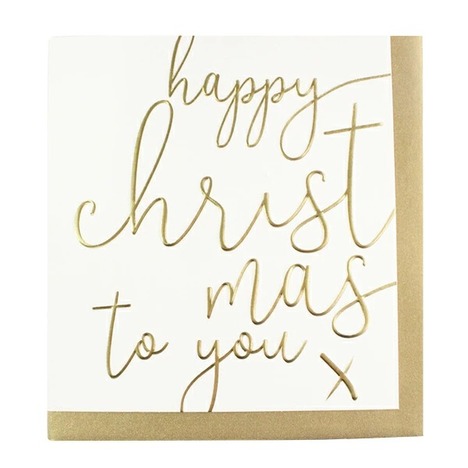 happy
christ
mas
to you x